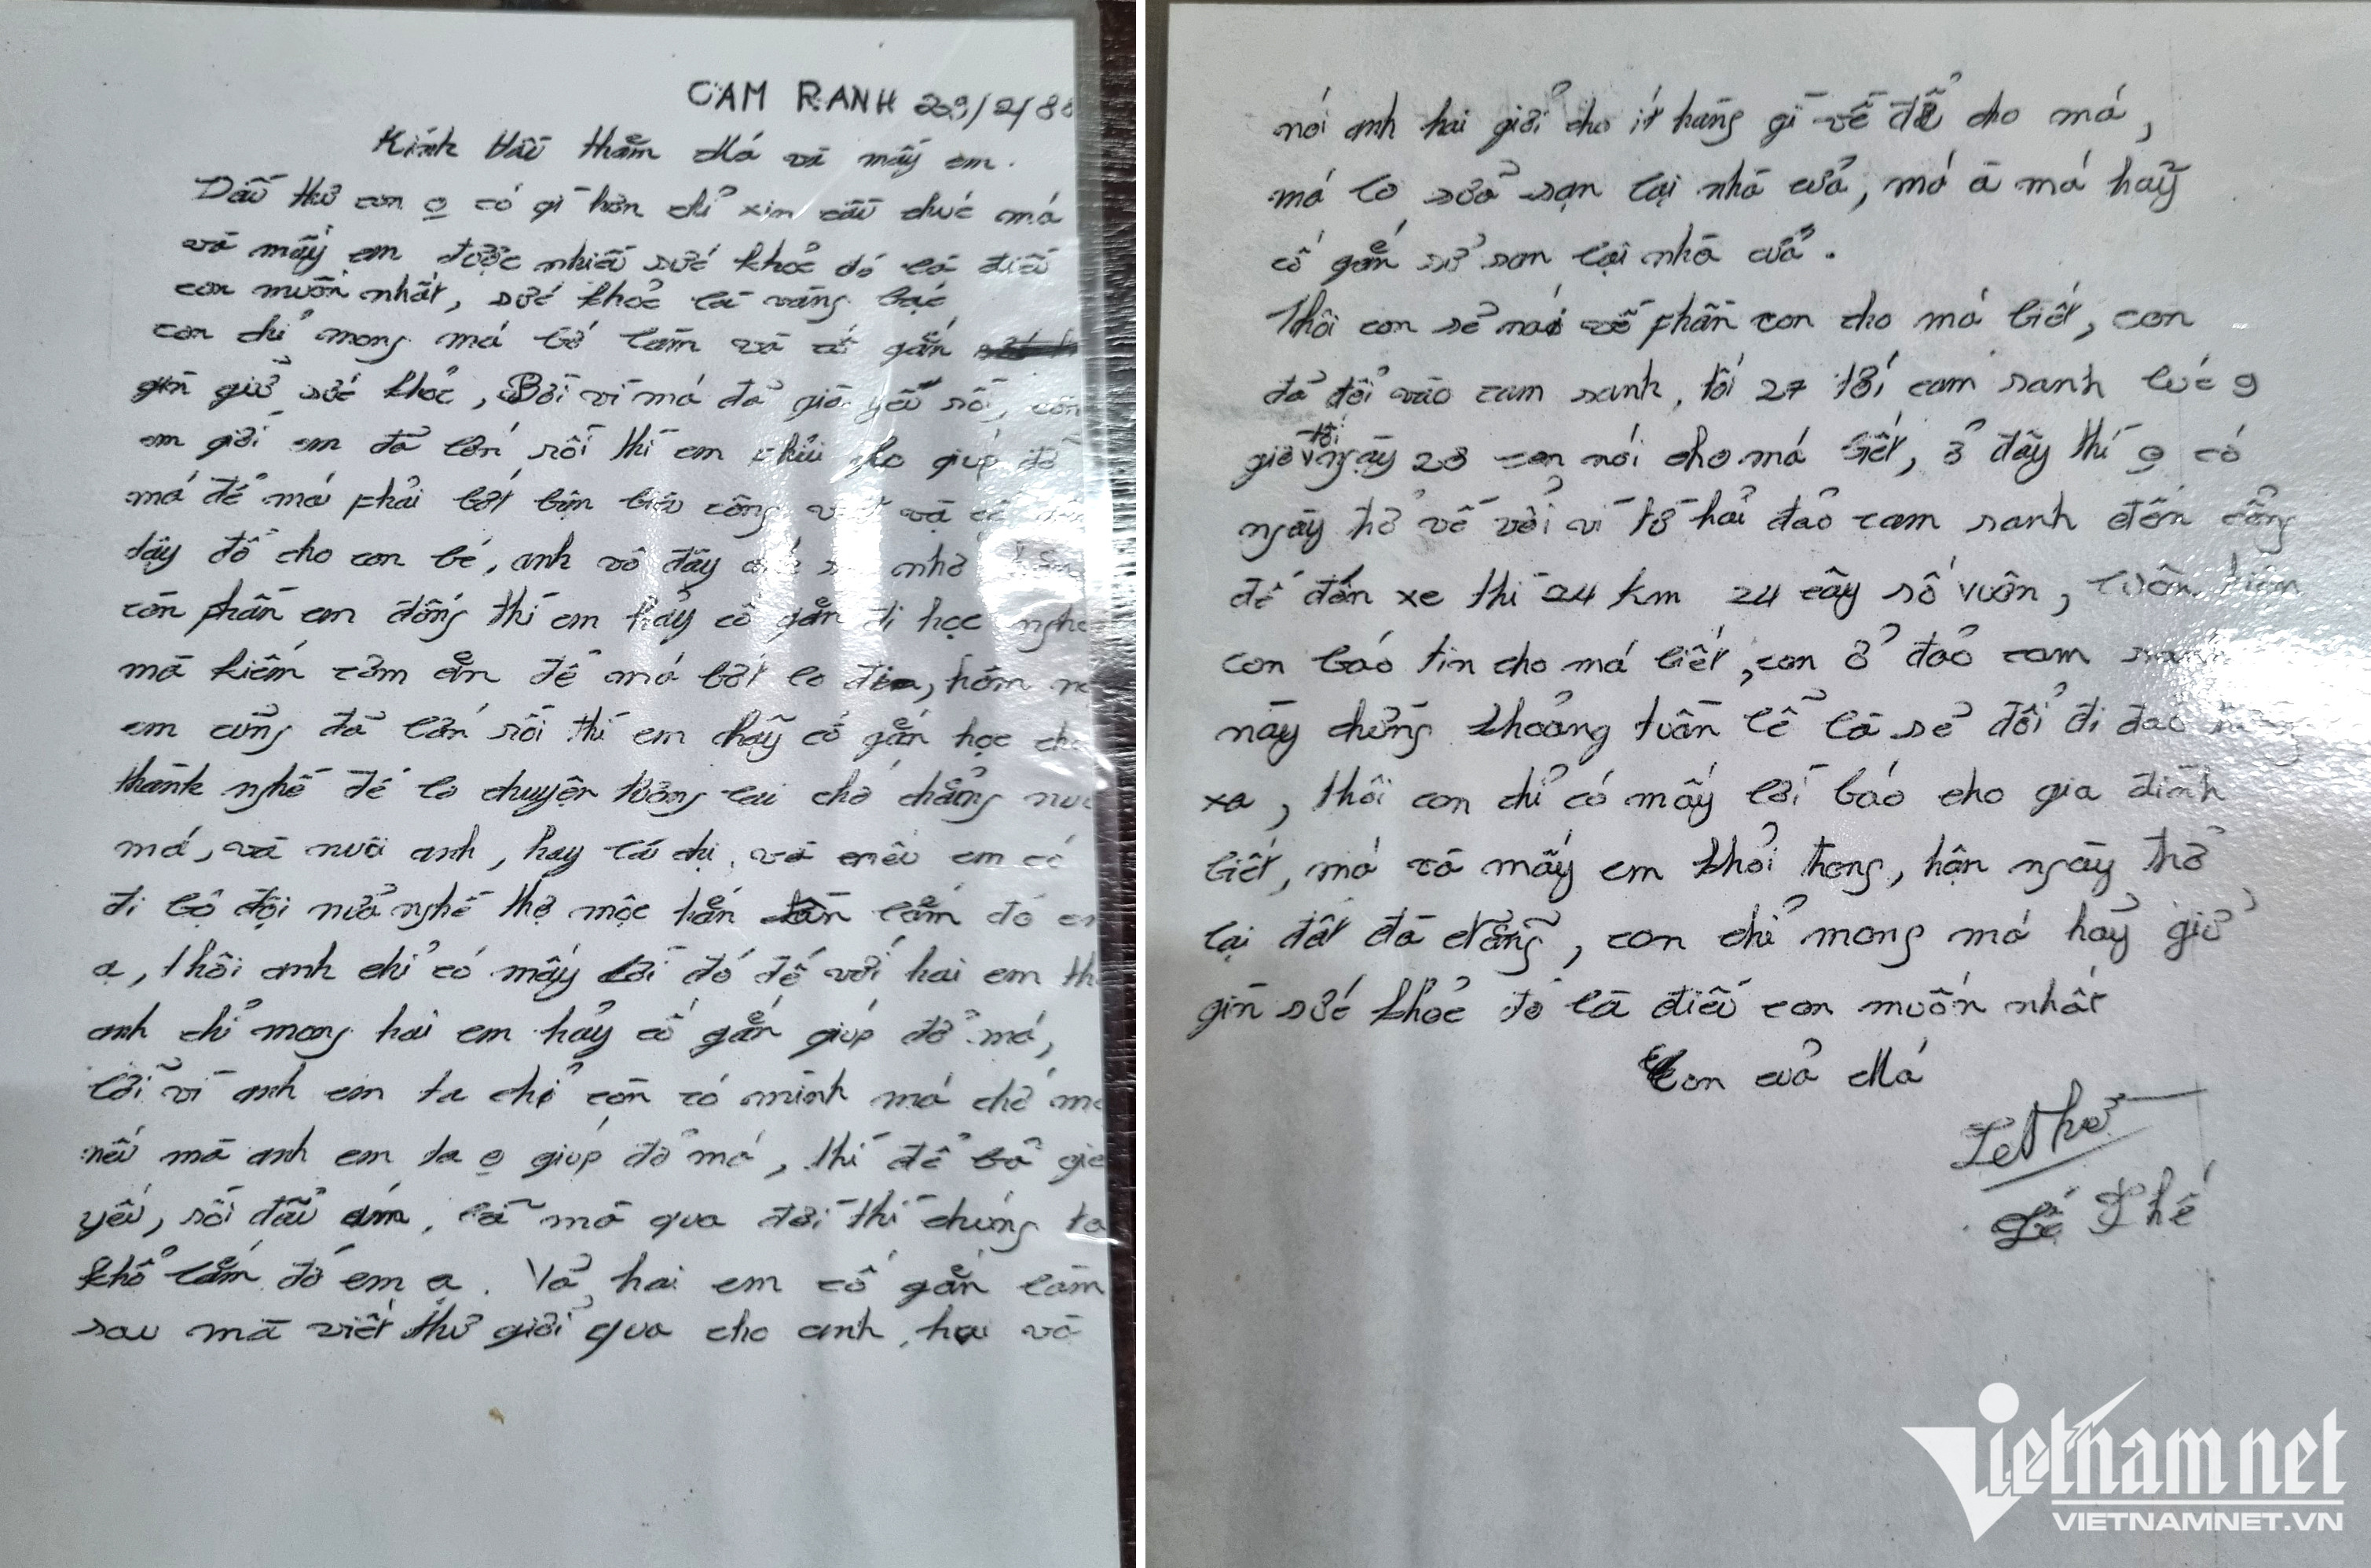 CAM RANH 29/2/88
Kính thăm Má và mấy em.
Đầu thư con o có gì hơn chỉ xin cầu chúc má
và mấy em được nhiều sức khỏe đó là điều
con muốn nhất, sức khỏe là vàng bạc
con chỉ mong má bớ làm và cố gắn
gìn giử sức khỏe, Bởi vì má đã già yếu rồi, còn
em giới em đã lớn rồi thì em phải cho giúp đở
má để má phải bớt bận biệu công và
dậy đổ cho con bé, anh vô đây nhờ
còn phần em đông thì em hảy cố gắn đi học nghề
mà kiếm cơm ăn để má bớt lo, hôm
em củng đả lớn rồi thì em hãy cố gắn học
thành nghề để lo chuyện tương lai chớ chẳng nuôi
má, và nuôi anh, hay là chị, và em có
đi bộ đội nửa nghề thợ mộc hắn lắm đó em
ạ, thôi anh chỉ có mấy lời đó để với hai em
anh chỉ mong hai em hảy cố gắn giúp đở má,
bởi vì anh em ta chỉ còn có mình má chớ
nếu mà anh em ta o giúp đở má, thì để già
yếu, rồi đầu ốm, mà qua đời thì chúng ta
khổ lắm đó em ạ. Và hai em cố gắn làm
sau mà viết thư giởi qua cho anh hai và
nói anh hai giởi cho ít hàng gì về để cho má,
má lo sửa sạn lại nhà cửa, má à má hãy
cố gắn sử san lại nhà cửa.
Thôi con sẻ nói về phần con cho má biết, con
đả đổi vào cam ranh, tối 27 tới cam ranh lúc 9
giờ tối ngày 28 con nói cho má biết, ở đây thì o có
ngày thở về với vì từ hải đảo cam ranh đến cổng
để đến xe thì 24 km 24 cây số vuôn, luôn tiện
con báo tin cho má biết, con ở đảo cam ranh
này chừng khoảng tuần lễ là sẻ đổi đi đảo
xa, thôi con chỉ có mấy lời báo cho gia đình
biết, má và mấy em khỏi trong, hận ngày thở
lại đất đà nẵng, con chỉ mong má hảy giử
gìn sức khỏe đó là điều con muốn nhất
Con của Má
Lê Thế
vietnamnet
VIETNAMNET.VN